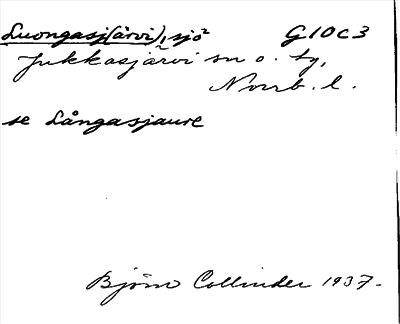 Luongasj(ärvi), sjö² G10C3
Jukkasjärvi sn o. tg,
Norrb. l.
se Långasjaure
Björn Collinder 1937.